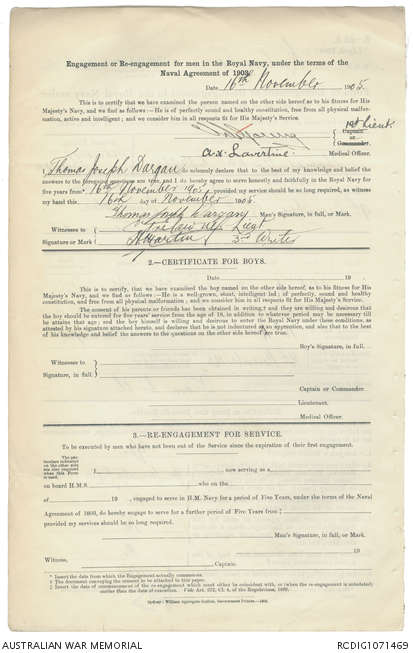 Engagement or Re-engagement for men in the Royal Navy, under the terms of the
Naval Agreement of 1903.
Date 16th November 1905.
This is to certify that we have examined the person named on the other side hereof as to his fitness for His
Majesty's Navy, and we find as follows:—He is of perfectly sound and healthy constitution, free from all physical malfor-
mation, active and intelligent; and we consider him in all respects fit for His Majesty's Service.
1st Lieut
Captain
or
Commander.
Medical Officer.
I, Thomas Joseph Dargan do solemnly declare that to the best of my knowledge and belief the
answers to the foregoing questions are true, and I do hereby agree to serve honestly and faithfully in the Royal Navy for
five years from 16th November 1905 provided my service should be so long required, as witness
my hand this 16th day of November 1905.
Thomas Joseph Dargan Man's Signature, in full, or Mark.
Witnesses to
Lieut
Signature or Mark 3rd Writer
2.—CERTIFICATE FOR BOYS.
Date 19
This is to certify, that we have examined the boy, named on the other side hereof, as to his fitness for His
Majesty's Navy, and we find as follows:—He is a well-grown, stout, intelligent lad; of perfectly, sound and healthy
constitution, and free from all physical malformation; and we consider him in all respects fit for His Majesty's Service.
The consent of his parents or friends has been obtained in writing,† and they are willing and desirous that
the boy should be entered for five years' service from the age of 18, in addition to whatever period may be necessary till
he attains that age; and the boy himself is willing and desirous to enter the Royal Navy under these conditions, as
attested by his signature attached hereto, and declares that he is not indentured as an apprentice, and also that to the best
of his knowledge and belief the answers to the questions on the other side hereof are true.
Boy's Signature, in full.
Witnesses to
Signature, in full.
Captain or Commander.
Lieutenant.
Medical Officer.
3.—RE-ENGAGEMENT FOR SERVICE.
To be executed by men who have not been out of the Service since the expiration of their first engagement.
I, now serving as a
on board H.M.S. who on the
of 19 , engaged to serve in H.M. Navy for a period of Five Years, under the terms of the Naval
Agreement of 1903, do hereby engage to serve for a further period of Five Years from‡
provided my services should be so long required.
Man's Signature, in full, or Mark.
19
Witness, Captain
* Insert the date from which the Engagement actually commences.
† The document conveying the consent to be attached to this paper.
AUSTRALIAN WAR MEMORIAL
RCDIG1071469